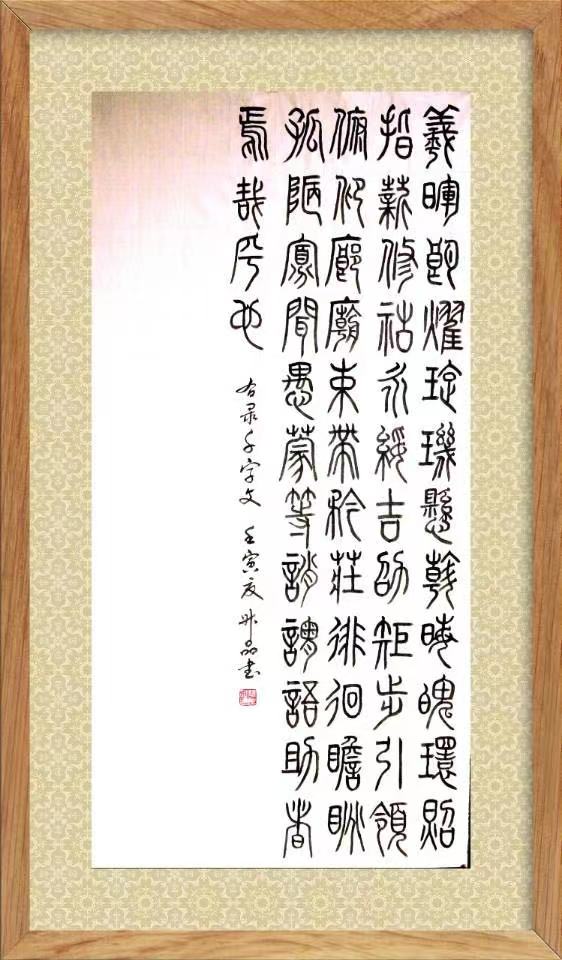 羲暉朗燿琁璣懸斡晦魄環照
指薪修祜永綏吉劭矩步引領
俯仰廊廟束帶矜莊徘徊瞻眺
孤陋寡聞愚蒙等誚謂語助者
焉哉乎也
右录千字文 壬寅夏 品书